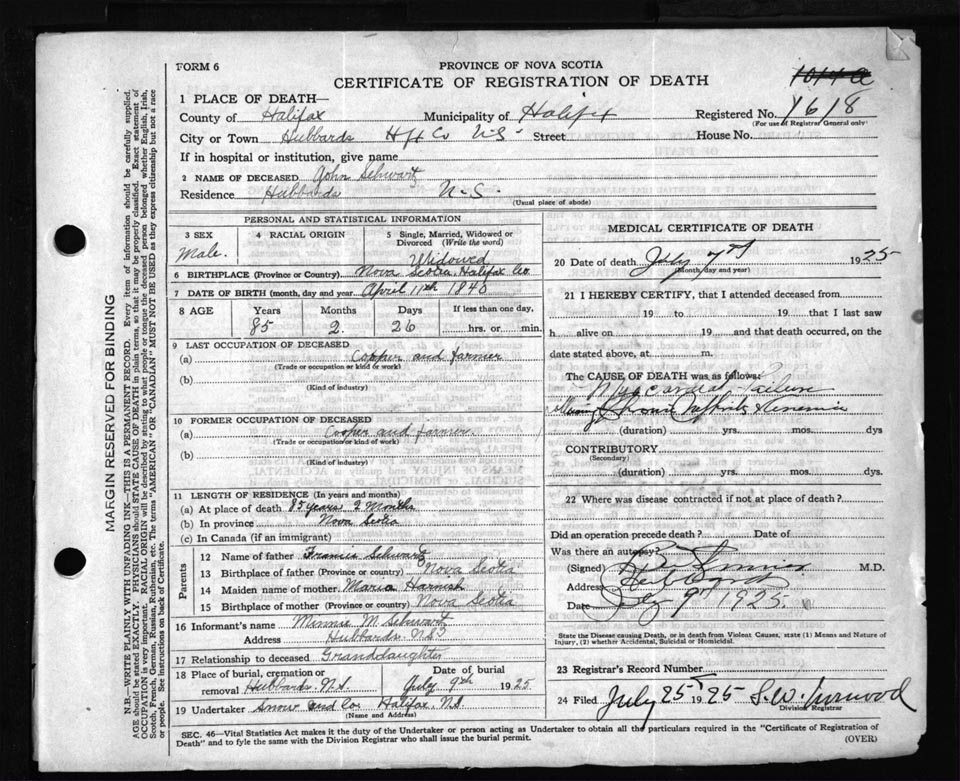 FORM 6
PROVINCE OF NOVA SCOTIA
CERTIFICATE OF REGISTRATION OF DEATH
1014 a
1 PLACE OF DEATH—
County of Halifax Municipality of Halifax Registered No. 1618
(For use of Registrar General only)
City or Town Hubbards Hfx Co N.S. Street House No.
If in hospital or institution, give name
2 NAME OF DECEASED John Schwartz
Residence Hubbards N.S.
(Usual place of abode)
PERSONAL AND STATISTICAL INFORMATION
3 SEX
Male.
4 RACIAL ORIGIN
5 Single, Married, Widowed or Divorced (Write the word)
Widowed
6 BIRTHPLACE (Province or Country) Nova Scotia, Halifax Co.
7 DATE OF BIRTH (month, day and year) April 11th 1840
8 AGE Years Months Days If less than one day,
85 2 26 hrs. or min.
9 LAST OCCUPATION OF DECEASED
(a) Cooper and farmer
(Trade or occupation or kind of work)
(b)
(Kind of industry)
10 FORMER OCCUPATION OF DECEASED
(a) Cooper and farmer.
(Trade or occupation or kind of work)
(b)
(Kind of industry)
11 LENGTH OF RESIDENCE (In years and months)
(a) At place of death 85 years 2 Months
(b) In province Nova Scotia
(c) In Canada (if an immigrant)
Parents
12 Name of father Francis Schwartz
13 Birthplace of father (Province or country) Nova Scotia
14 Maiden name of mother Maria Harnish
15 Birthplace of mother (Province or country) Nova Scotia
16 Informant's name Minnie M. Schwartz
Address Hubbards N.S.
17 Relationship to deceased Granddaughter
18 Place of burial, cremation or removal Hubbards N.S. Date of burial July 9th 1925
19 Undertaker Snow and Co. Halifax N.S.
(Name and Address)
MEDICAL CERTIFICATE OF DEATH
20 Date of death July 7th 1925
(Month, day and year)
21 I HEREBY CERTIFY, that I attended deceased from
19 to 19 that I last saw
h alive on 19 and that death occurred, on
date stated above, at m.
The CAUSE OF DEATH was as follows:
Myocardial Failure
Chronic Nephritis
(duration) yrs. mos. dys
CONTRIBUTORY
(Secondary)
(duration) yrs. mos. dys
22 Where was disease contracted if not at place of death?
Did an operation precede death? Date of
Was there an autopsy?
(Signed) M.D.
Address Hubbards
Date 9 1925.
State the Disease causing Death, or in death from Violent Causes, state (1) Means and Nature of Injury, (2) whether Accidental, Suicidal or Homicidal.
23 Registrar's Record Number
24 Filed July 25 1925
Division Registrar
SEC. 46—Vital Statistics Act makes it the duty of the Undertaker or person acting as Undertaker to obtain all the particulars required in the "Certificate of Registration of
Death" and to fyle the same with the Division Registrar who shall issue the burial permit.
(OVER)
MARGIN RESERVED FOR BINDING
N.B.—WRITE PLAINLY WITH UNFADING INK—THIS IS A PERMANENT RECORD. Every item of information should be carefully supplied.
AGE should be stated EXACTLY. PHYSICIANS should STATE CAUSE OF DEATH in plain terms, so that it may be properly classified. Exact statement of
OCCUPATION is very important. RACIAL ORIGIN will be described by stating to what people or tongue the deceased person belonged whether English, Irish,
Scotch, French, German, Russian, Ruthenian, etc. The terms "AMERICAN" or "CANADIAN" MUST NOT BE USED as they express citizenship but not a race
or people. See instructions on back of Certificate.